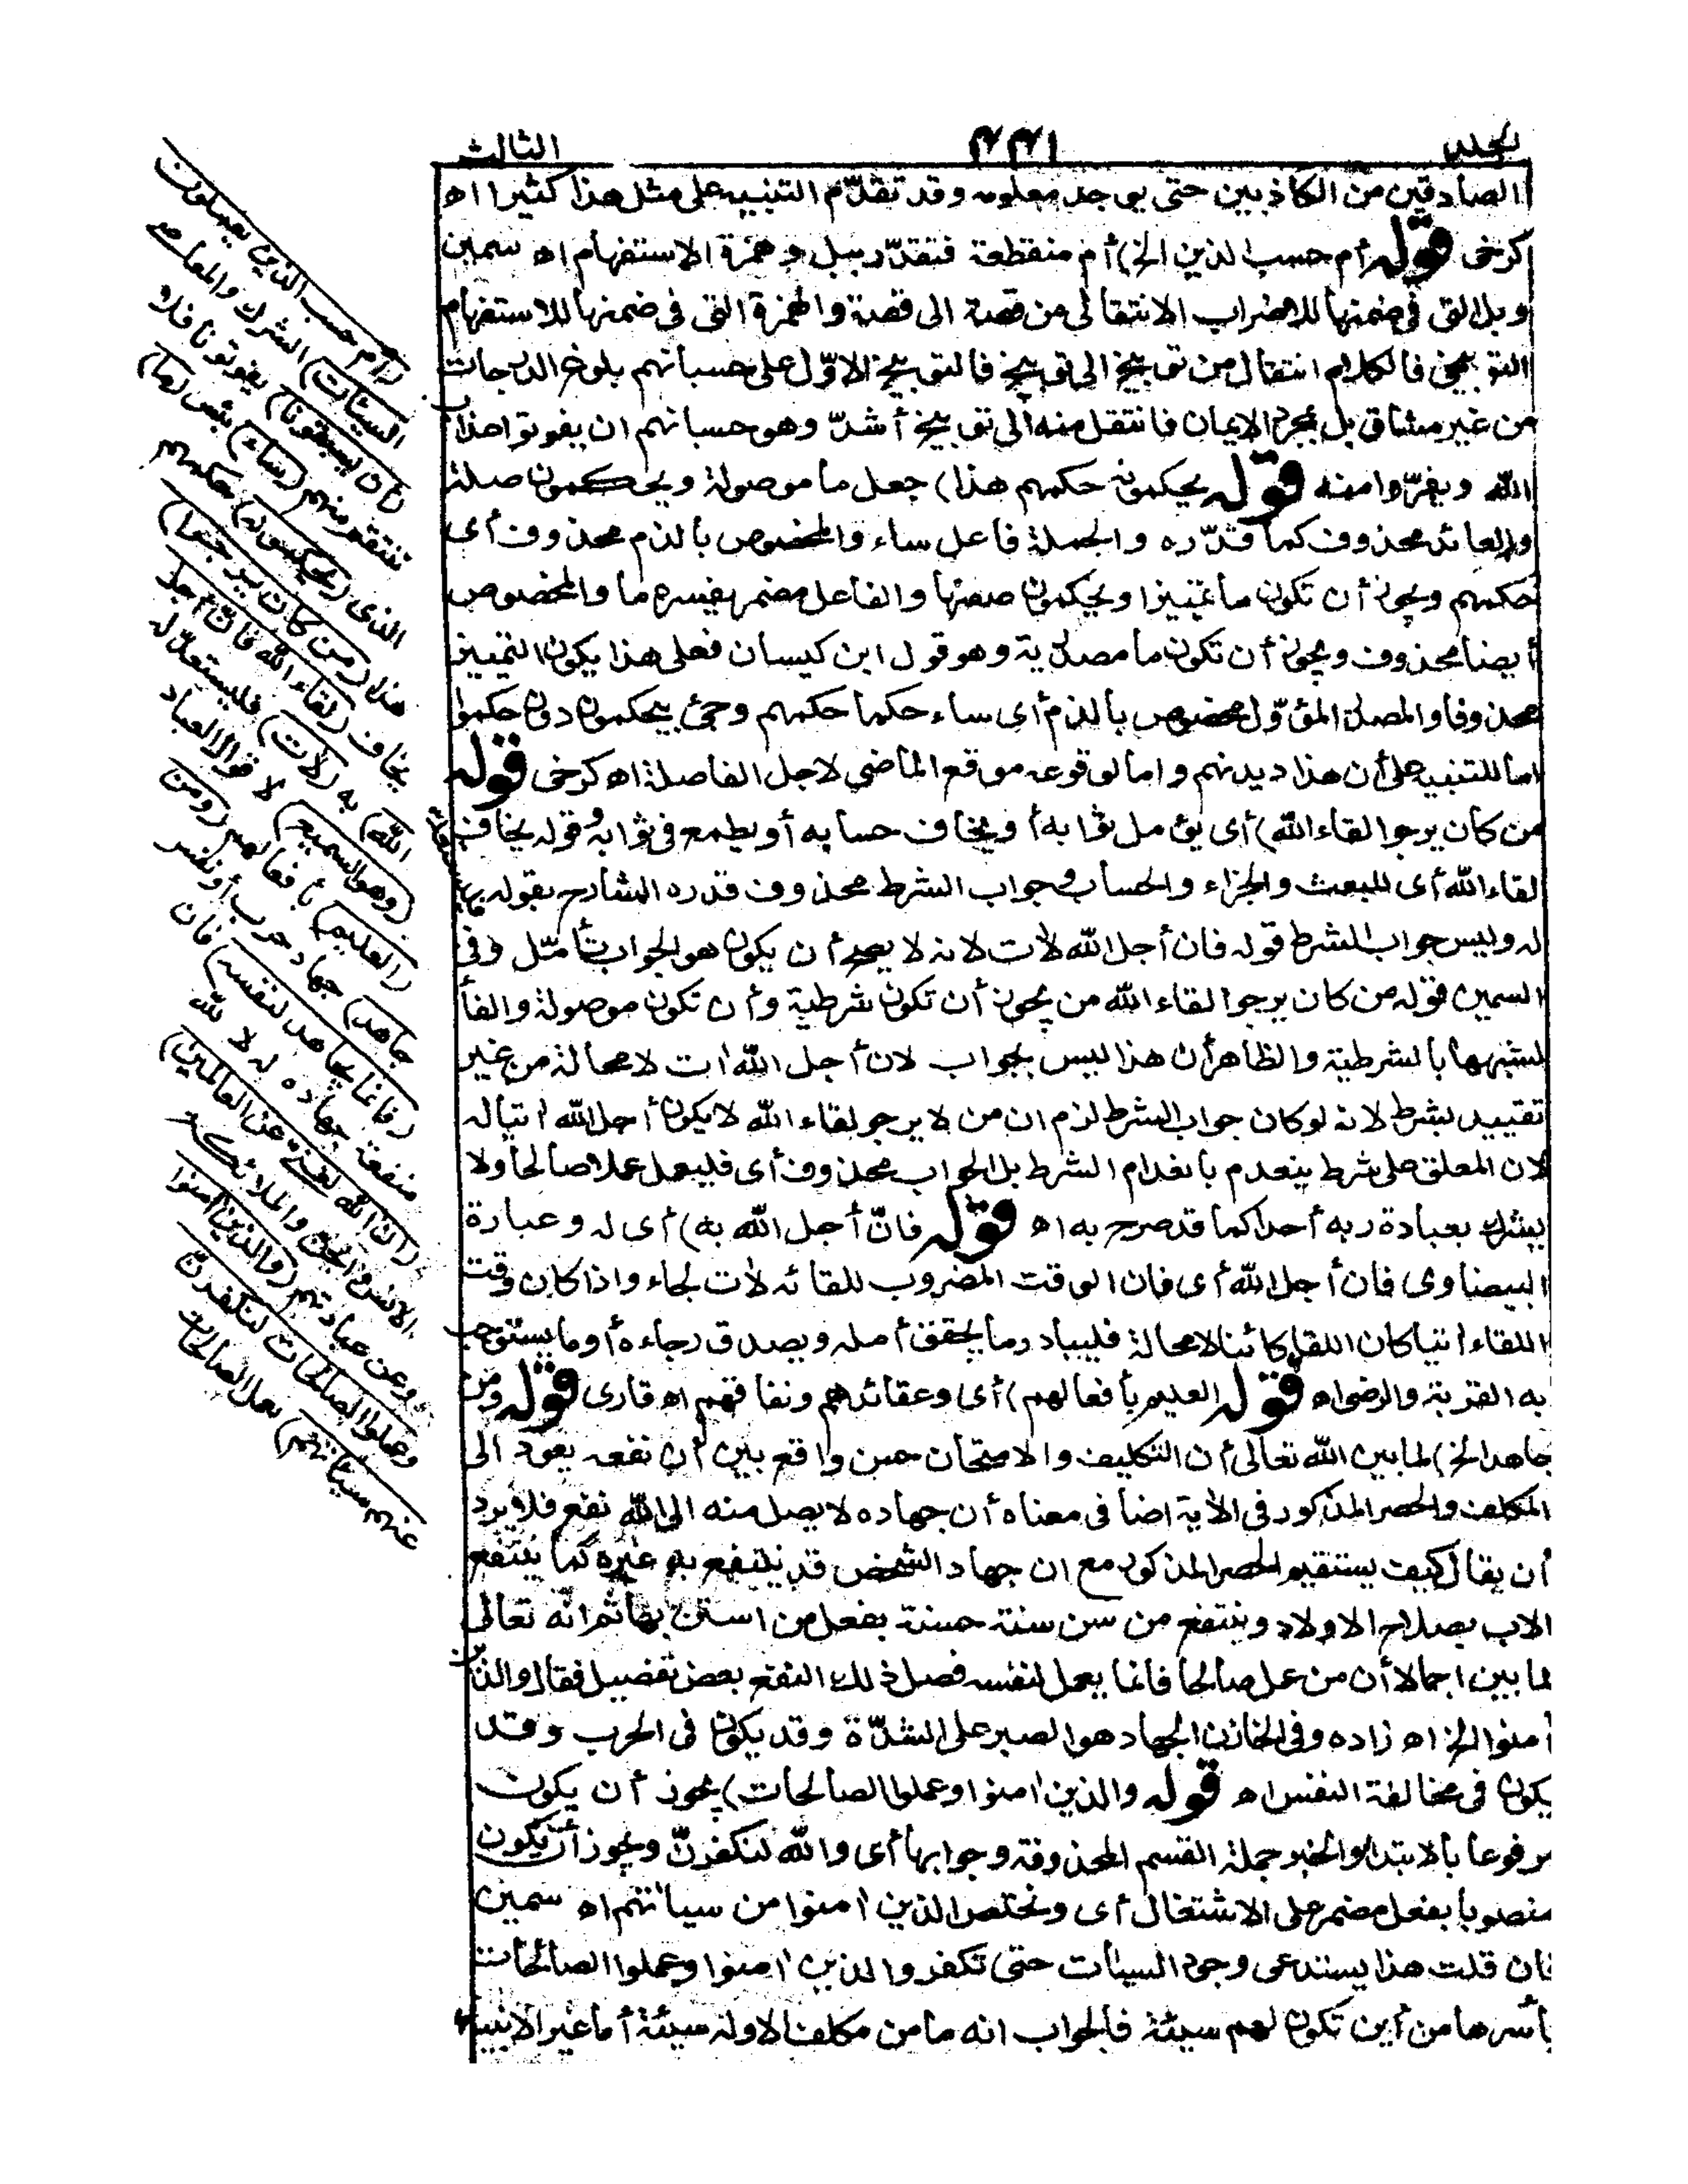 الجلد
٤٤١
الثالث
الصادقين من الكاذبين حتى يوجد معلومه وقد تقدّم التنبيه على مثل هذا كثيرا اه
كرخى قوله أم حسب الذين الخ) أم منقطعة فتقدّر ببل وهمزة الاستفهام اه سمين
وبل التى فى ضمنها للاضراب الانتقالى من قصة الى قصة والهمزة التى فى ضمنها للاستفهام
التوبيخى فالكلام انتقال من توبيخ الى توبيخ فالتوبيخ الاوّل على حسبانهم بلوغ الدرجات
من غير مشاق بل بمجرد الايمان فانتقل منه الى توبيخ أشدّ وهو حسبانهم ان يفوتوا عذاب
الله ويفرّوا منه قوله يحكمونه حكمهم هذا) جعل ما موصولة ويحكمون صلة
والعائد محذوف كما قدّره والجملة فاعل ساء والمخصوص بالذم محذوف أى
حكمهم ويجوز أن تكون ما تمييزا ويحكمون صفتها والفاعل مضمر يفسره ما والمخصوص
أيضا محذوف ويجوز أن تكون ما مصدرية وهو قول ابن كيسان فعلى هذا يكون التمييز
محذوفا والمصدر المؤوّل مخصوص بالذم أى ساء حكما حكمهم وجئ بيحكمون دون حكموا
اما للتنبيه على أن هذا ديدنهم واما لوقوعه موقع الماضى لاجل الفاصلة اه كرخى قوله
من كان يرجوا لقاء الله) أى يؤمل ثوابه أو يخاف حسابه أو يطمع فى ثوابه وقوله يخاف
لقاء الله أى للبعث والجزاء والحساب وجواب الشرط محذوف قدره الشارح بقوله
له وليس جواب الشرط قوله فان أجل الله لآت لانه لا يصح أن يكون هو الجواب تأمّل وفى
السمين قوله من كان يرجوا لقاء الله من يجوز أن تكون شرطية وأن تكون موصولة والفأ
لشبهها بالشرطية والظاهر أن هذا ليس بجواب لان أجل الله اٰت لا محالة من غير
تقييد بشرط لانه لو كان جواب الشرط لزم ان من لا يرجو لقاء الله لا يكون أجل الله اٰتيا له
لان المعلق على شرط ينعدم بانعدام الشرط بل الجواب محذوف أى فليعمل عملا صالحا ولا
يشرك بعبادة ربه أحدا كما قد صرح به اه قوله فانّ أجل الله به) أى له وعبارة
البيضاوى فان أجل الله أى فان الوقت المضروب للقائه لآت لجاء واذا كان وقت
اللقاء اٰتيا كان اللقاء كائنا لا محالة فليبادر ما يحقق أمله ويصدق رجاءه أو ما يستوجب
به القربة والرضى اه قوله العليم بأفعالهم) أى وعقائدهم ونفاقهم اه قارى قوله ومن
جاهد الخ) لما بين الله تعالى أن التكليف والامتحان حسن واقع بين أن نفعه يعود الى
المكلف والحصر المذكور فى الآية اضافى معناه أن جهاده لا يصل منه الى الله نفع فلا يرد
أن يقال كيف يستقيم الحصر المذكور مع ان جهاد الشخص قد ينتفع به غيره كما ينتفع
الاب بصلاح الاولاد وينتفع من سن سنة حسنة بفعل من استن بها ثم انّه تعالى
لما بين اجمالا أن من عمل صالحا فانما يعمل لنفسه فصل ذلك النفع بعض تفصيل فقال والذين
اٰمنوا الخ اه زاده وفى الخازن الجهاد هو الصبر على الشدّة وقد يكون فى الحرب وقد
يكون فى مخالفة النفس اه قوله والذين اٰمنوا وعملوا الصالحات) يجوز أن يكون
مرفوعا بالابتداء والخبر جملة القسم المحذوفة وجوابها أى والله لنكفرنّ ويجوز أن يكون
منصوبا بفعل مضمر على الاشتغال أى ونخلص الذين اٰمنوا من سياٰتهم اه سمين
فان قلت هذا يستدعى وجود السيئات حتى تكفر والذين اٰمنوا وعملوا الصالحات
بأسرها من أين تكون لهم سيئة فالجواب انه ما من مكلف الا وله سيئة أما غير الانبياء
(أم حسب الذين يعملون
السيئات) الشرك والمعاصى
(أن يسبقونا) يفوتونا فلا
ننتقم منهم (ساء) بئس (ما)
الذى (يحكمونه) حكمهم
هذا (من كان يرجوا)
يخاف (لقاء الله فان أجل
الله) به (لآت) فليستعدّ له
(وهو السميع) لاقوال العباد
(العليم) بأفعالهم (ومن
جاهد) جهاد حرب أو نفس
(فانما يجاهد لنفسه) فان
منفعة جهاده له لا لله
(ان الله لغنى عن العالمين)
الانس والجن والملائكة
وعن عبادتهم (والذين اٰمنوا
وعملوا الصالحات لنكفرنّ
عنهم سيئاتهم) بعمل الصالحات